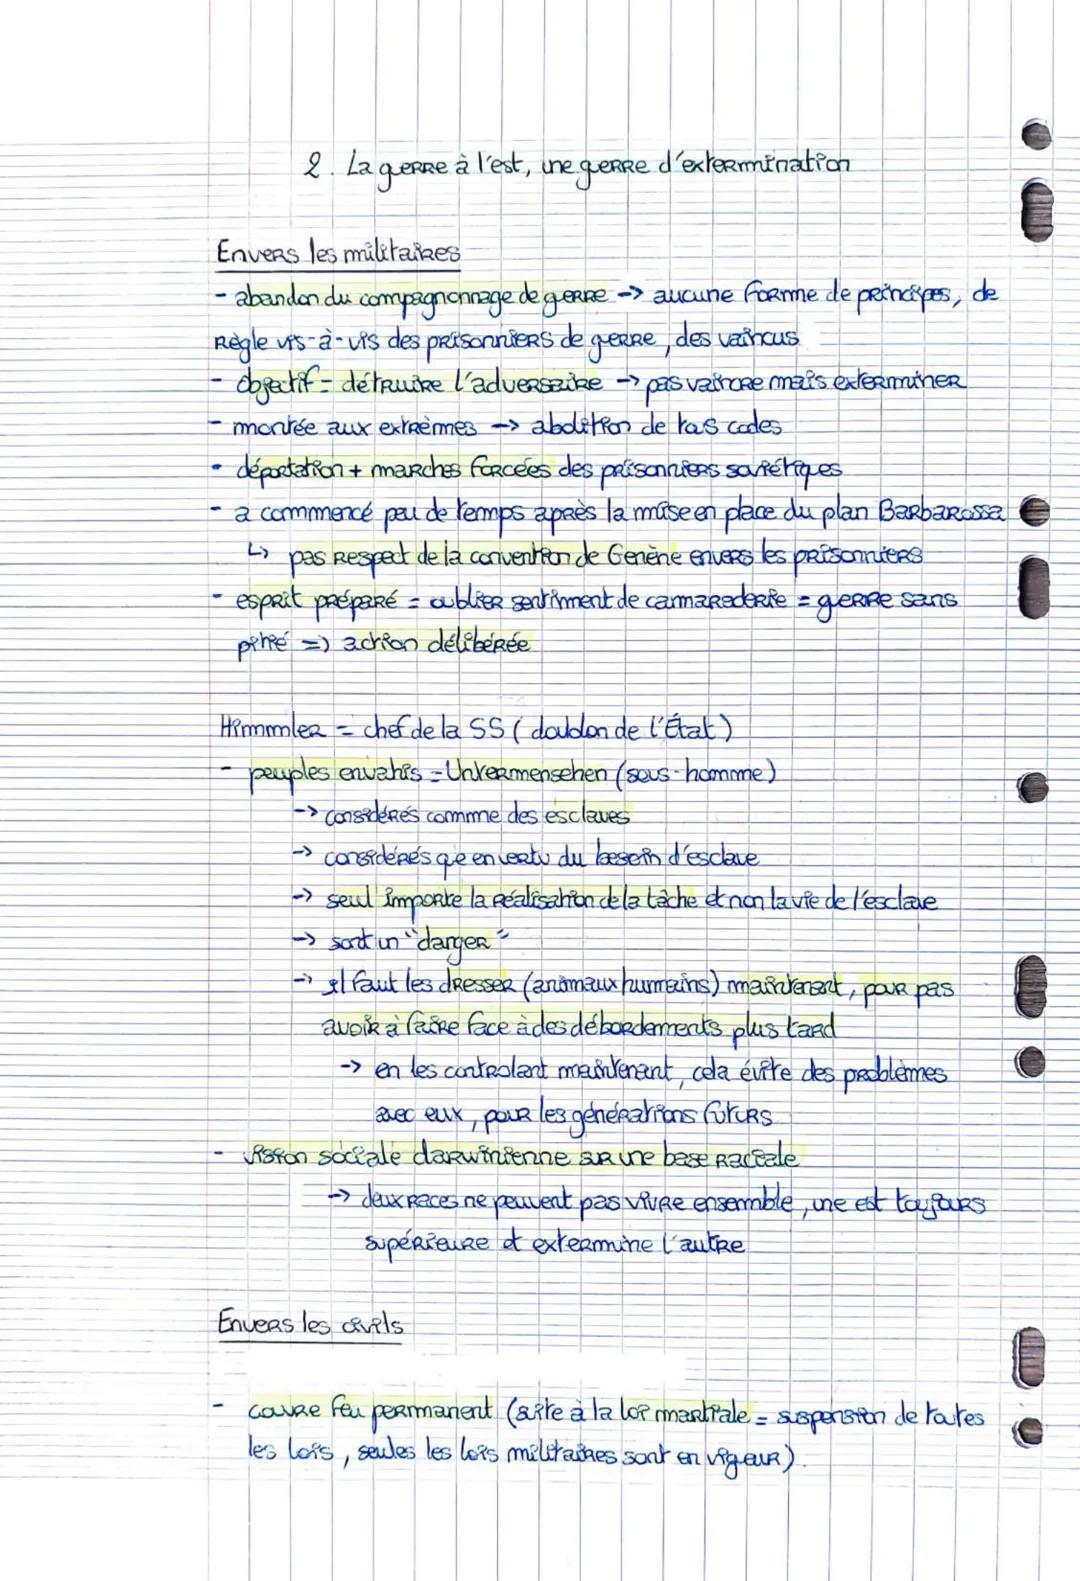 2. La guerre à l'est, une guerre d'extermination
Envers les militaires
- abandon du compagnonnage de guerre -> aucune forme de principes, de
Règle vis-à-vis des prisonniers de guerre, des vaincus
- objectif = détruire l'adversaire -> pas vaincre mais exterminer
- montée aux extrèmes -> abolition de tous codes
- déportation + marches forcées des prisonniers soviétiques
- a commencé peu de temps après la mise en place du plan Barbarossa
↳ pas Respect de la convention de Genène envers les prisonniers
- esprit préparé = oublier sentiment de camaraderie = guerre sans
pitié => action délibérée
Himmler = chef de la SS (doublon de l'État)
- peuples envahis = Untermenschen (sous-homme)
-> considérés comme des esclaves
-> considérés que en vertu du besoin d'esclave
-> seul importe la réalisation de la tâche et non la vie de l'esclave
-> sont un "danger"
-> il faut les dresser (animaux humains) maintenant, pour pas
avoir à faire face à des débordements plus tard
-> en les controlant maintenant, cela évite des problèmes
avec eux, pour les générations futurs
- vision sociale darwinienne sur une base raciale
-> deux races ne peuvent pas vivre ensemble, une est toujours
supérieure et extermine l'autre
Envers les civils
- couvre feu permanent (suite à la loi martiale = suspension de toutes
les lois, seules les lois militaires sont en vigueur).